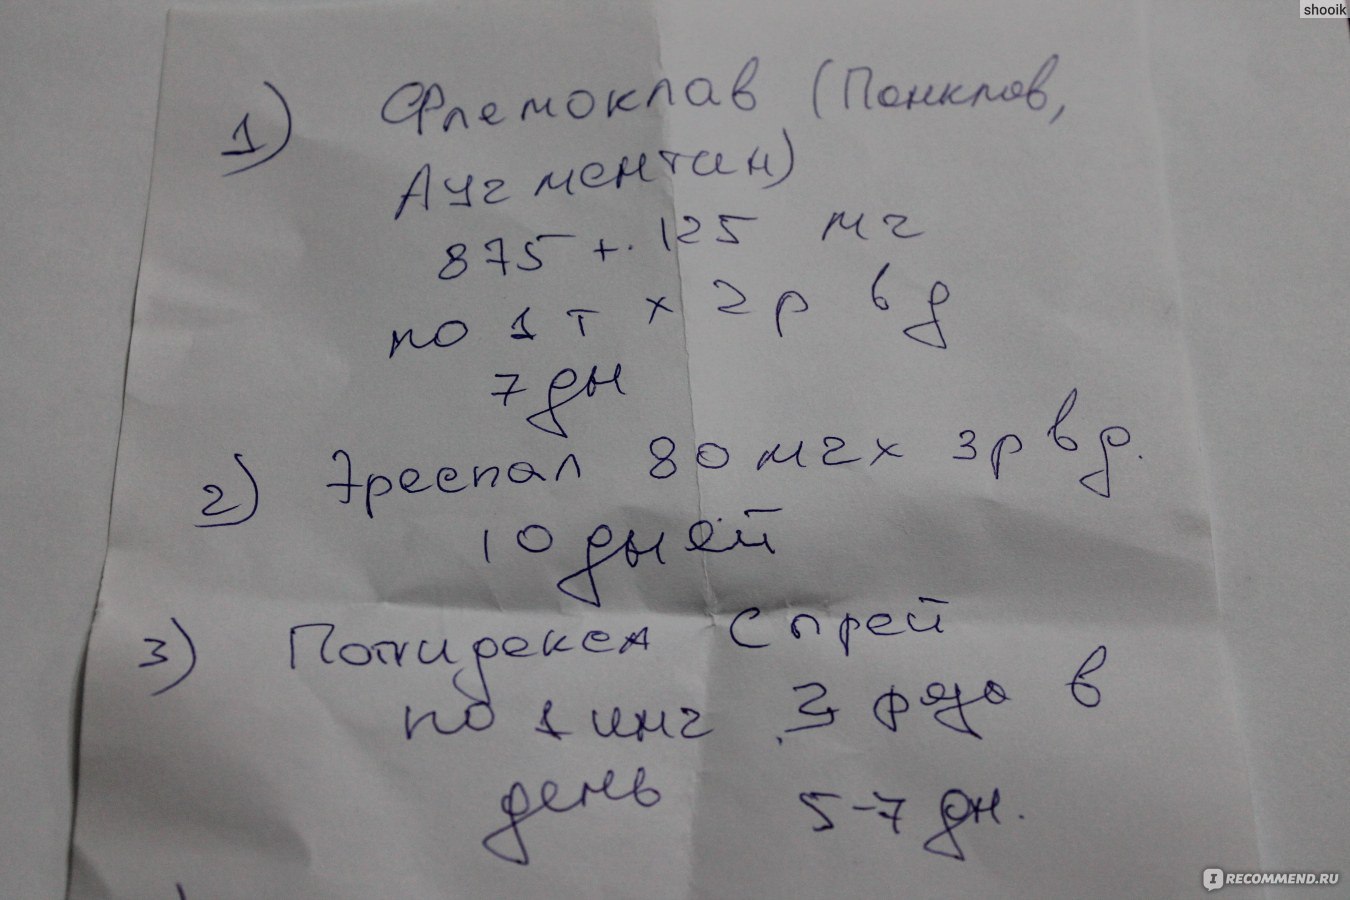 shooik
1) Флемоклав (Панклав,
Аугментин)
875 + 125 мг
по 1 т х 2 р в д
7 дн
2) Эреспал 80 мг х 3 р в д.
10 дней
3) Полидекса спрей
по 1 инг раза в
день 5-7 дн.
IRECOMMEND.RU